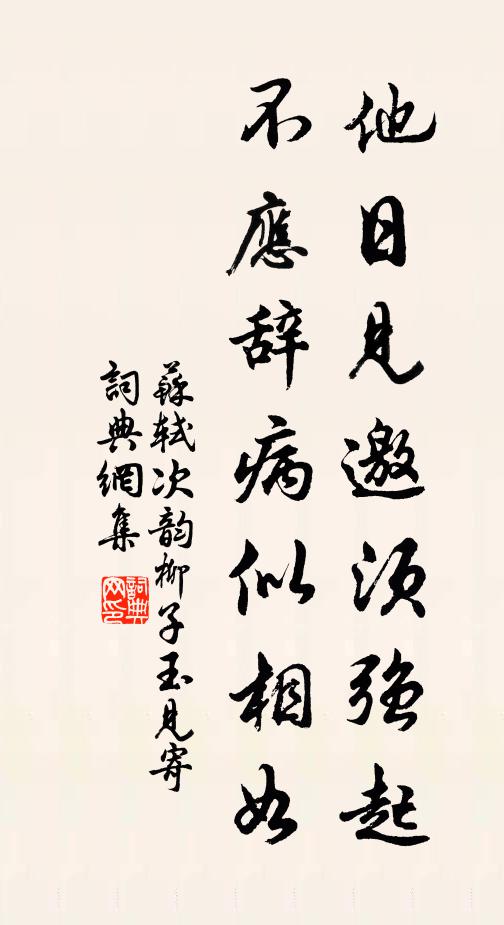 他日見邀須強起
不應辞病似相如
蘇軾次韵柳子玉見寄
詞典網集
詞典
网印